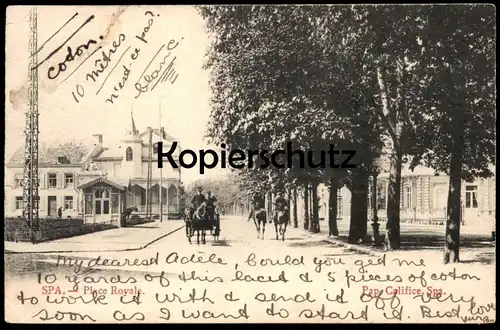 coton.
10 mètres
n'est-ce pas?
blanc
Kopierschutz
My dearest Adèle, Could you get me
SPA. — Place Royale.
10 yards of this lace & 5 pieces of cotton
Pap. Califice, Spa.
to work it with & send it off very
soon as I want to start it. Best love